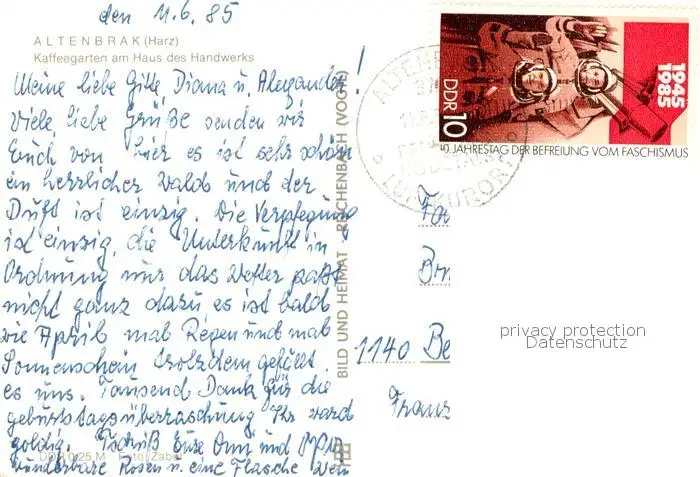 den 11.6.85
ALTENBRAK (Harz)
Kaffeegarten am Haus des Handwerks
Meine liebe Gitte, Diana u. Alexander!
Viele liebe Grüße senden wir
Euch von hier es ist sehr schön
ein herrlicher Wald und der
Duft ist einzig. Die Verpflegung
ist einzig, die Unterkunft in
Ordnung nur das Wetter paßt
nicht ganz dazu, es ist bald
wie April mal Regen und mal
Sonnenschein trotzdem gefällt
es uns. Tausend Dank für die
geburtstagsüberraschung Ihr ward
goldig. Tschüß Eure Omi und
wunderbare Rosen u. eine Flasche Wein
DDR 0,25 M Foto: Zabel
BILD UND HEIMAT REICHENBACH (VOGTL)
DDR 10
1945
1985
40. JAHRESTAG DER BEFREIUNG VOM FASCHISMUS
LUFTKURORT
1140 Be
Franz
privacy protection
Datenschutz